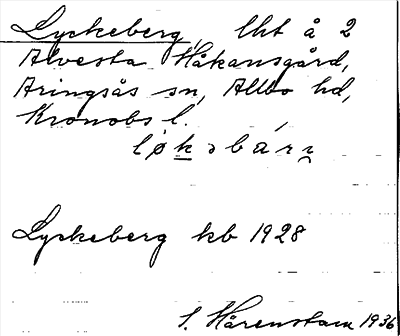 Lyckeberg, lht å 2
Alvesta Håkansgård,
Aringsås sn, Allbo hd,
Kronobs l.
løkəbárɲ
Lyckeberg kb 1928
S. Hårenstam 1936